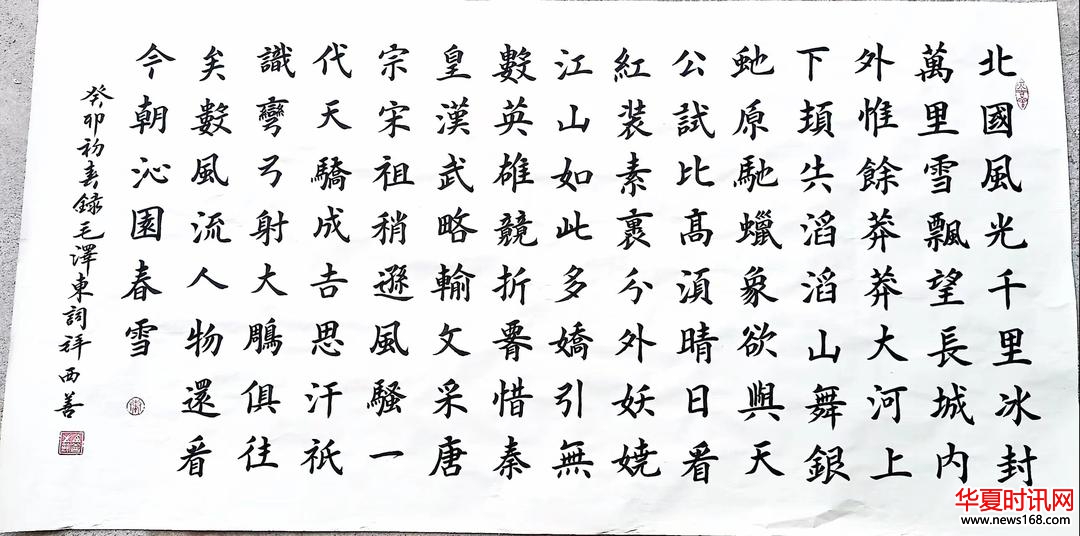 北國風光千里冰封
萬里雪飄望長城内
外惟餘莽莽大河上
下頓失滔滔山舞銀
虵原馳蠟象欲與天
公試比髙須晴日看
紅裝素裹分外妖嬈
江山如此多嬌引無
數英雄競折腰惜秦
皇漢武略輸文采唐
宗宋祖稍遜風騷一
代天驕成吉思汗祇
識彎弓射大鵰俱往
矣數風流人物還看
今朝沁園春雪
癸卯初春錄毛澤東詞祥西善
华夏时讯网
www.news168.com